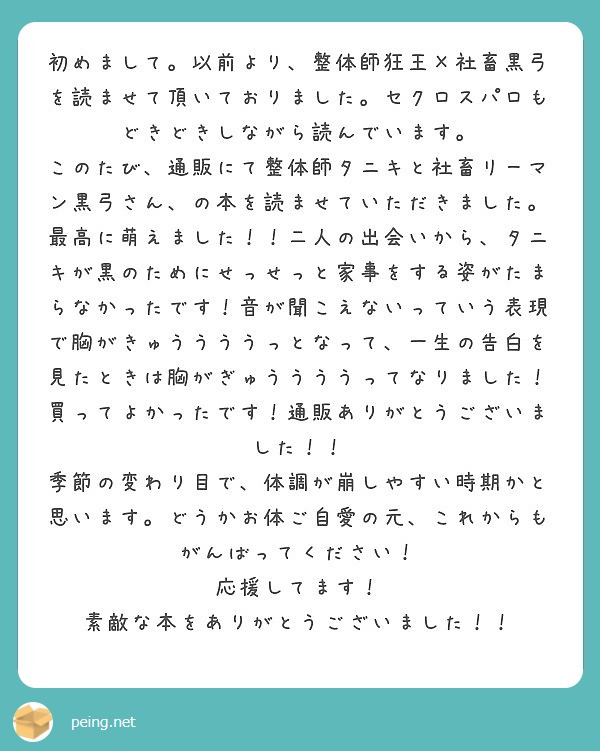 初めまして。以前より、整体師狂王×社畜黒弓
を読ませて頂いておりました。セクロスパロも
どきどきしながら読んでいます。
このたび、通販にて整体師タニキと社畜リーマ
ン黒弓さん、の本を読ませていただきました。
最高に萌えました！！二人の出会いから、タニ
キが黒のためにせっせっと家事をする姿がたま
らなかったです！音が聞こえないっていう表現
で胸がきゅうううっとなって、一生の告白を
見たときは胸がぎゅうううってなりました！
買ってよかったです！通販ありがとうございま
した！！
季節の変わり目で、体調が崩しやすい時期かと
思います。どうかお体ご自愛の元、これからも
がんばってください！
応援してます！
素敵な本をありがとうございました！！
peing.net